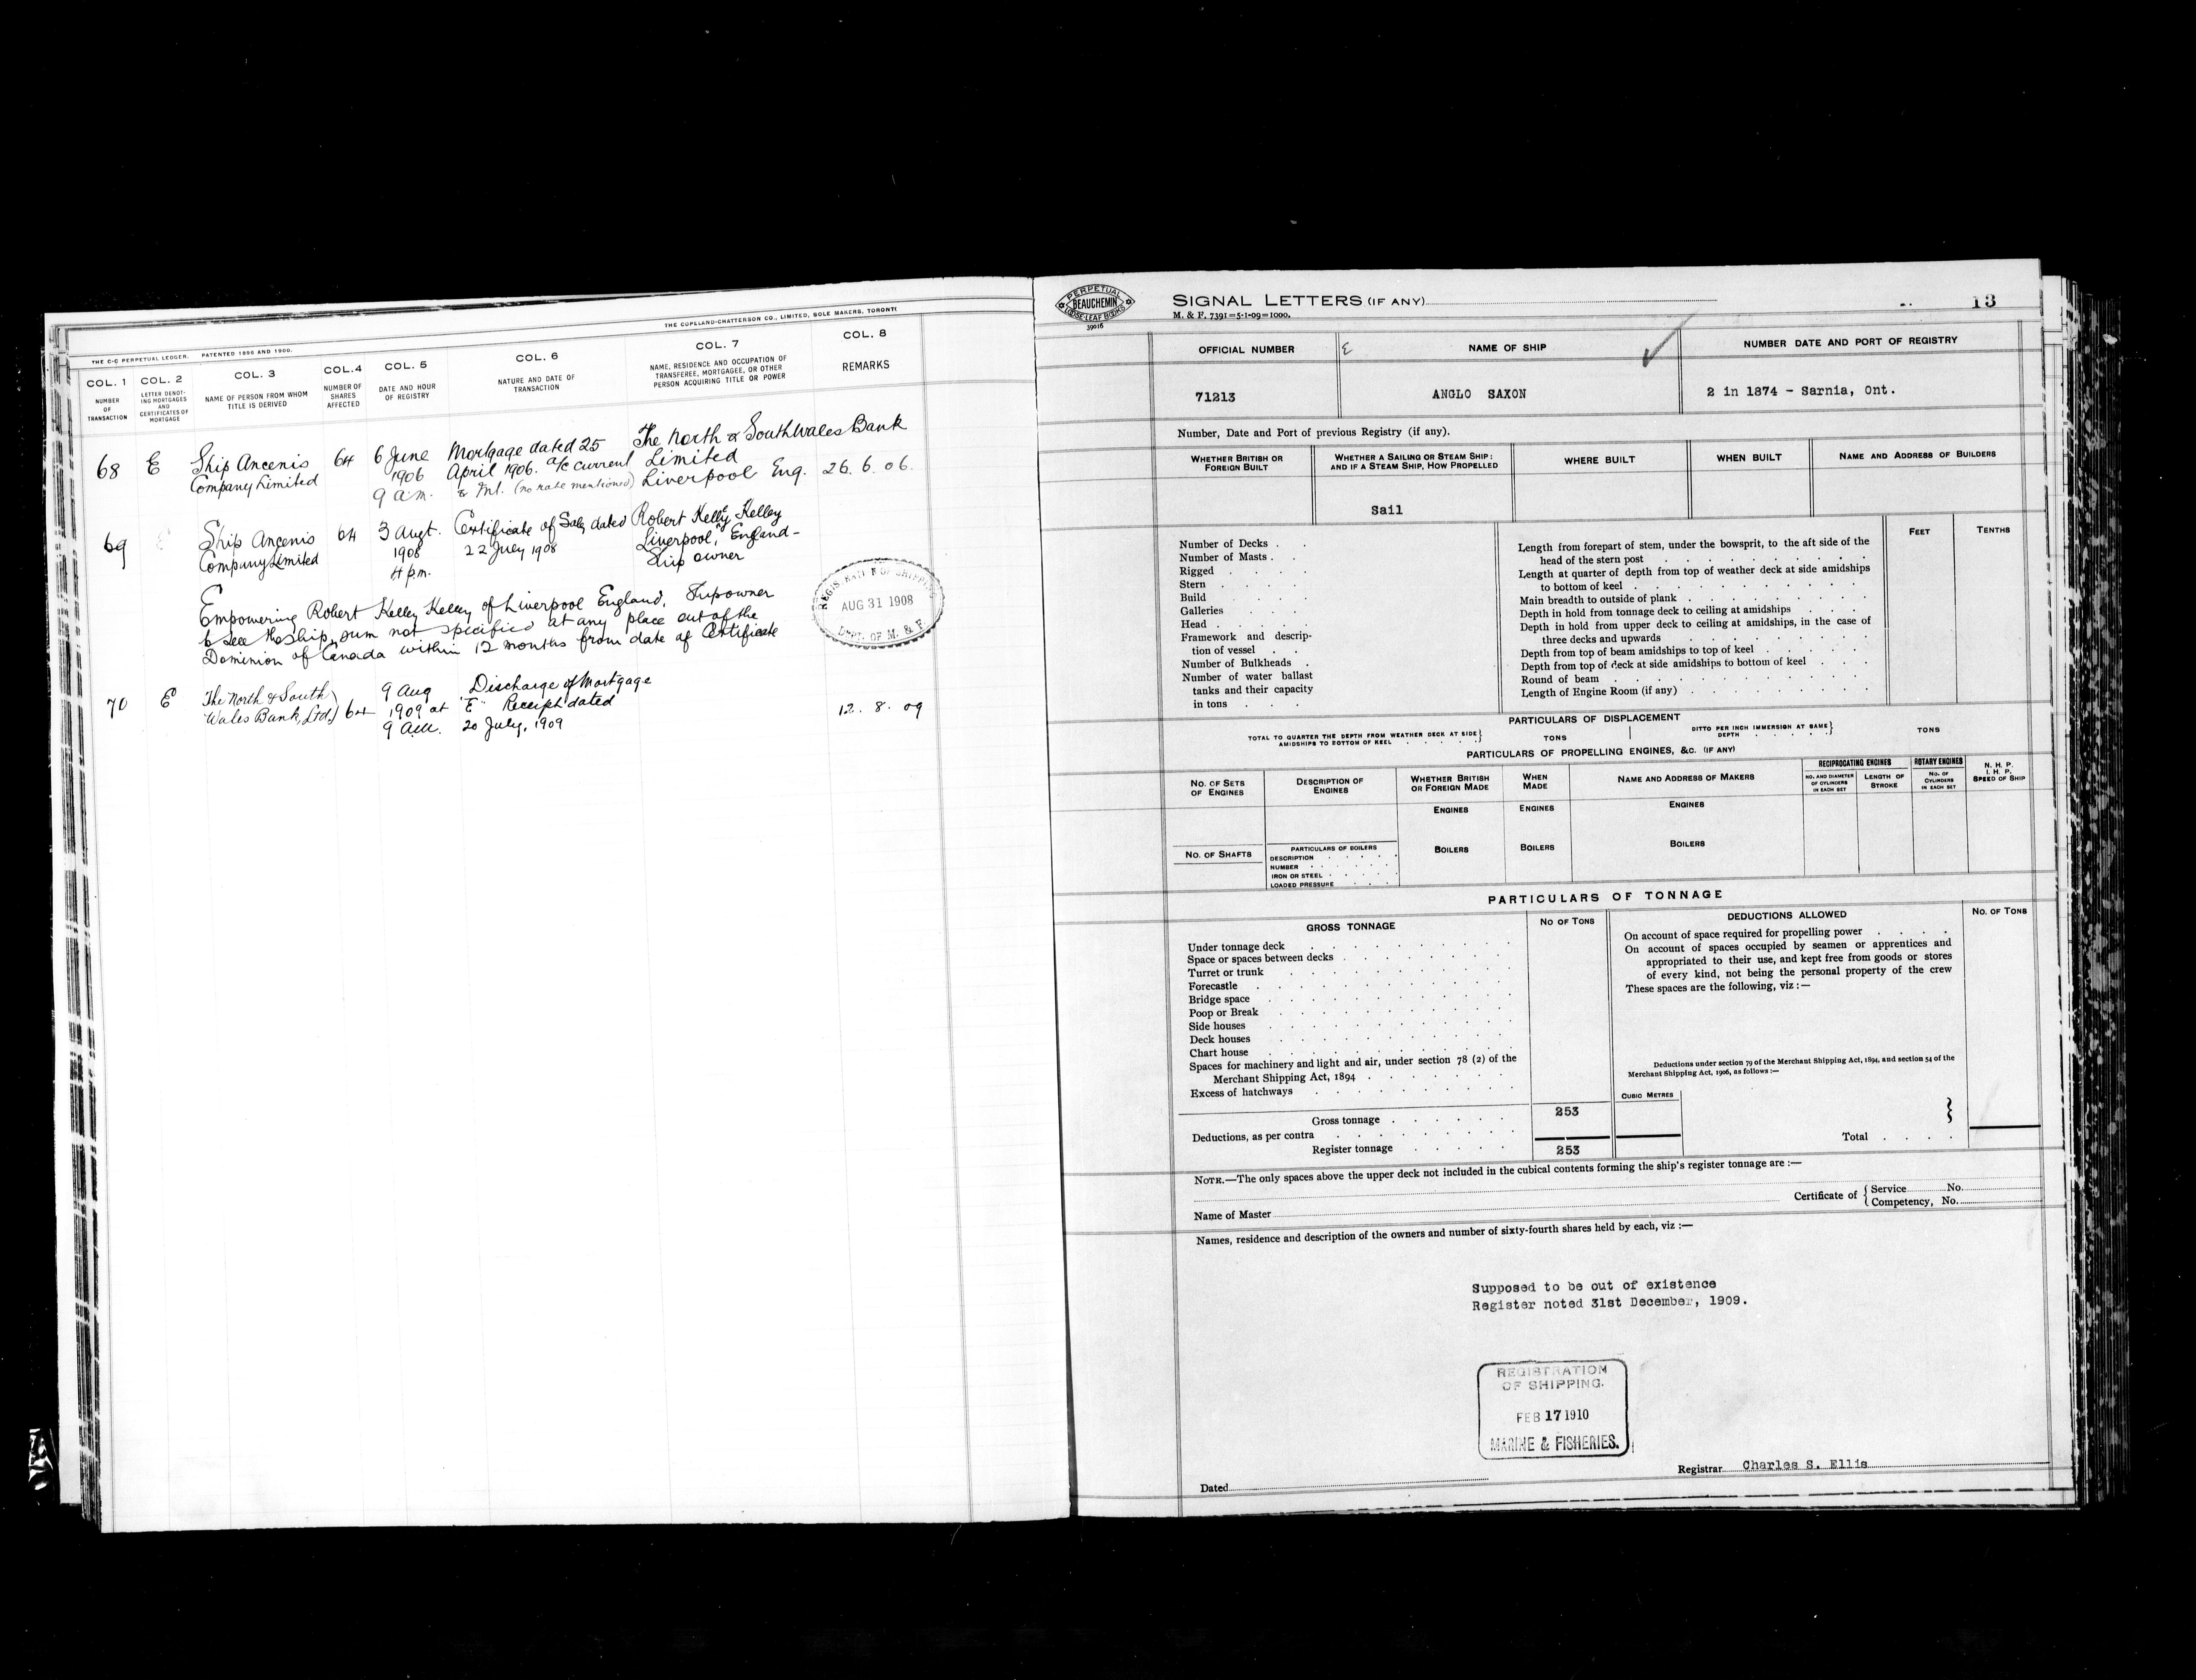 THE C-C PERPETUAL LEDGER. PATENTED 1896 AND 1900.
THE COPELAND-CHATTERSON CO., LIMITED, SOLE MAKERS, TORONTO
COL. 1
NUMBER
OF
TRANSACTION
COL. 2
LETTER DENOT-
ING MORTGAGES
AND
CERTIFICATES OF
MORTGAGE
COL. 3
NAME OF PERSON FROM WHOM
TITLE IS DERIVED
COL.4
NUMBER OF
SHARES
AFFECTED
COL. 5
DATE AND HOUR
OF REGISTRY
COL. 6
NATURE AND DATE OF
TRANSACTION
COL. 7
NAME, RESIDENCE AND OCCUPATION OF
TRANSFEREE, MORTGAGEE, OR OTHER
PERSON ACQUIRING TITLE OR POWER
COL. 8
REMARKS
68 E Ship Ancenis 64 6 June Mortgage dated 25 The North & South Wales Bank
Company Limited 1906 April 1906. a/c current Limited
9 a.m. & Int. (no rate mentioned) Liverpool Eng. 26. 6. 06.
69 E Ship Ancenis 64 3 Augt. Certificate of Sale dated Robert Kelly Kelley
Company Limited 1908 22 July 1908 Liverpool, England-
4 p.m. Ship owner
Empowering Robert Kelley Kelley of Liverpool England, Shipowner
to sell the ship, sum not specified at any place out of the
Dominion of Canada within 12 months from date of Certificate
AUG 31 1908
DEPT. OF M. & F.
70 E The North & South 9 Aug Discharge of Mortgage
Wales Bank, Ltd.) 64 1909 at "E" Receipt dated 12. 8. 09
9 a.m. 20 July, 1909
PERPETUAL
BEAUCHEMIN
LOOSE LEAF BOOKS
39016
SIGNAL LETTERS (IF ANY)
M. & F. 7391=5-1-09=1000.
13
OFFICIAL NUMBER
NAME OF SHIP
NUMBER DATE AND PORT OF REGISTRY
71213
ANGLO SAXON
2 in 1874 - Sarnia, Ont.
Number, Date and Port of previous Registry (if any).
WHETHER BRITISH OR
FOREIGN BUILT
WHETHER A SAILING OR STEAM SHIP:
AND IF A STEAM SHIP, HOW PROPELLED
WHERE BUILT
WHEN BUILT
NAME AND ADDRESS OF BUILDERS
Sail
Number of Decks
Number of Masts
Rigged
Stern
Build
Galleries
Head
Framework and descrip-
tion of vessel
Number of Bulkheads
Number of water ballast
tanks and their capacity
in tons
FEET
TENTHS
Length from forepart of stem, under the bowsprit, to the aft side of the
head of the stern post
Length at quarter of depth from top of weather deck at side amidships
to bottom of keel
Main breadth to outside of plank
Depth in hold from tonnage deck to ceiling at amidships
Depth in hold from upper deck to ceiling at amidships, in the case of
three decks and upwards
Depth from top of beam amidships to top of keel
Depth from top of deck at side amidships to bottom of keel
Round of beam
Length of Engine Room (if any)
PARTICULARS OF DISPLACEMENT
TOTAL TO QUARTER THE DEPTH FROM WEATHER DECK AT SIDE
AMIDSHIPS TO BOTTOM OF KEEL
TONS
DITTO PER INCH IMMERSION AT SAME
DEPTH
TONS
PARTICULARS OF PROPELLING ENGINES, &C. (IF ANY)
NO. OF SETS
OF ENGINES
DESCRIPTION OF
ENGINES
WHETHER BRITISH
OR FOREIGN MADE
WHEN
MADE
NAME AND ADDRESS OF MAKERS
RECIPROCATING ENGINES
NO. AND DIAMETER
OF CYLINDERS
IN EACH SET
LENGTH OF
STROKE
ROTARY ENGINES
NO. OF
CYLINDERS
IN EACH SET
N. H. P.
I. H. P.
SPEED OF SHIP
ENGINES
ENGINES
ENGINES
NO. OF SHAFTS
PARTICULARS OF BOILERS
DESCRIPTION
NUMBER
IRON OR STEEL
LOADED PRESSURE
BOILERS
BOILERS
BOILERS
PARTICULARS OF TONNAGE
GROSS TONNAGE
NO OF TONS
DEDUCTIONS ALLOWED
NO. OF TONS
Under tonnage deck
Space or spaces between decks
Turret or trunk
Forecastle
Bridge space
Poop or Break
Side houses
Deck houses
Chart house
Spaces for machinery and light and air, under section 78 (2) of the
Merchant Shipping Act, 1894
Excess of hatchways
Gross tonnage 253
Deductions, as per contra
Register tonnage 253
On account of space required for propelling power
On account of spaces occupied by seamen or apprentices and
appropriated to their use, and kept free from goods or stores
of every kind, not being the personal property of the crew
These spaces are the following, viz :—
Deductions under section 79 of the Merchant Shipping Act, 1894, and section 54 of the
Merchant Shipping Act, 1906, as follows :—
CUBIC METRES
Total
NOTE.—The only spaces above the upper deck not included in the cubical contents forming the ship's register tonnage are :—
Name of Master
Certificate of { Service No.
Competency, No.
Names, residence and description of the owners and number of sixty-fourth shares held by each, viz :—
Supposed to be out of existence
Register noted 31st December, 1909.
REGISTRATION
OF SHIPPING.
FEB 17 1910
MARINE & FISHERIES.
Dated
Registrar Charles S. Ellis